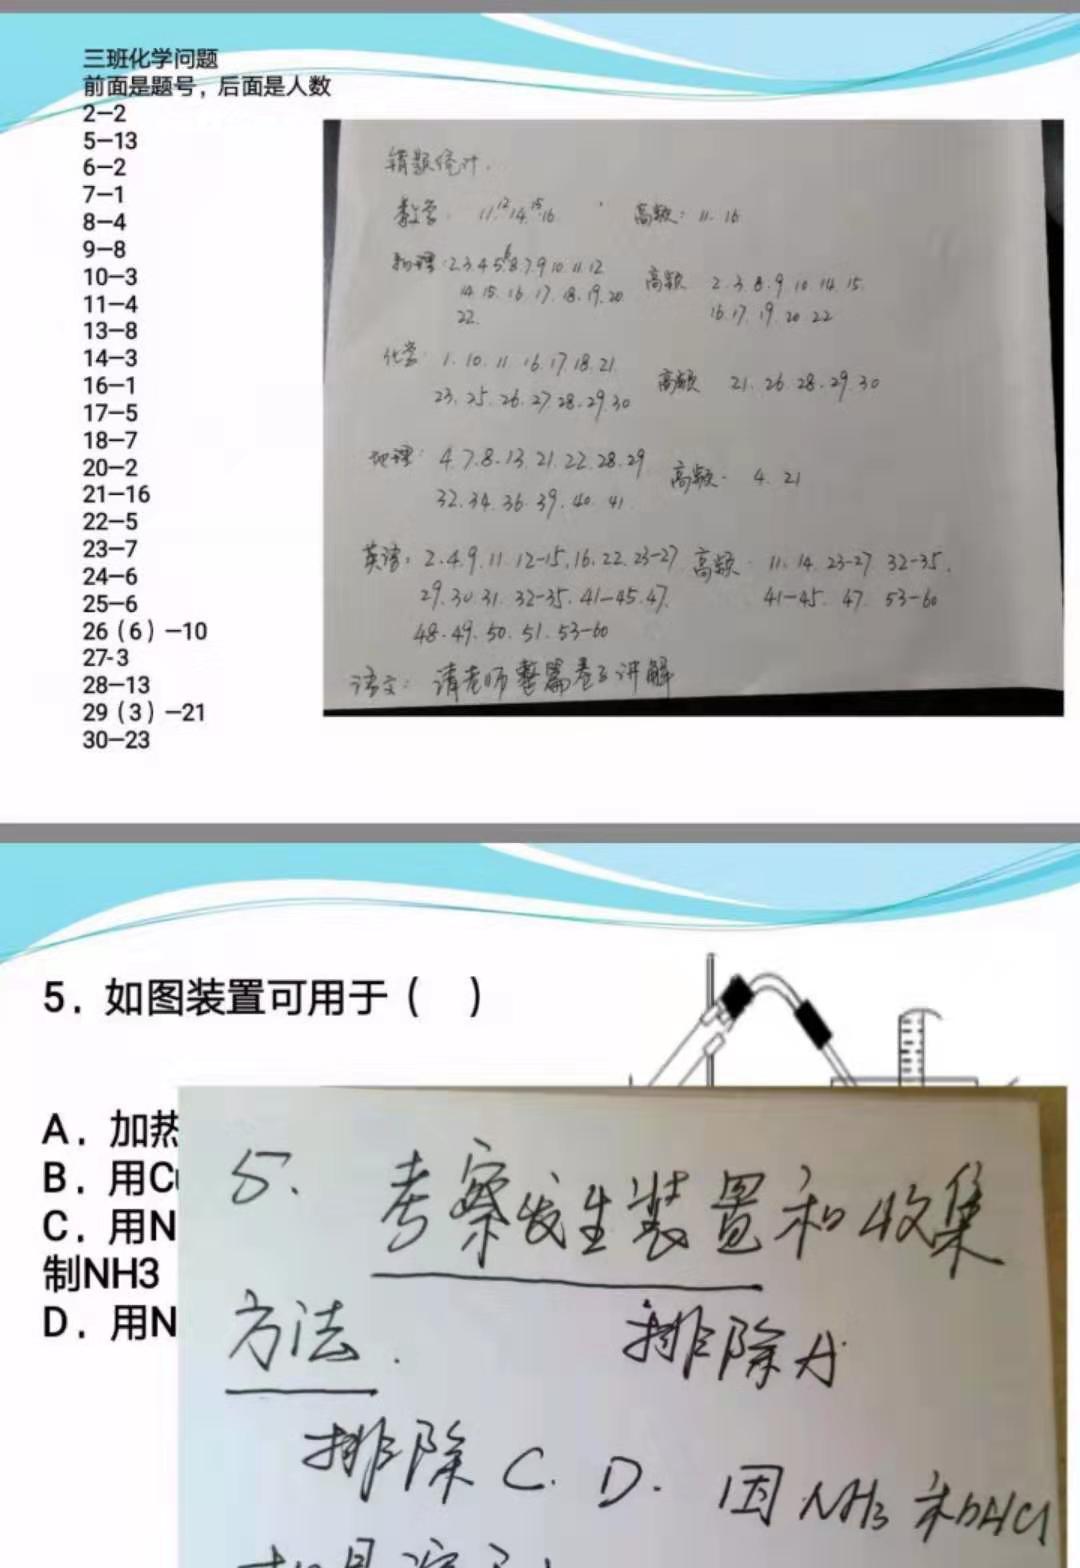 三班化学问题
前面是题号，后面是人数
2—2
5—13
6—2
7—1
8—4
9—8
10—3
11—4
13—8
14—3
16—1
17—5
18—7
20—2
21—16
22—5
23—7
24—6
25—6
26（6）—10
27-3
28—13
29（3）—21
30—23
错题统计.
数学: 11.12 14.15 16 高频: 11. 16
物理: 2 3 4 5 6 8 7 9 10 11 12
14. 15. 16 17. 18. 19. 20
22.
高频 2. 3. 8. 9 10 14. 15.
16. 17. 19. 20 22
化学: 1. 10. 11 16. 17 18. 21.
23. 25. 26. 27 28. 29 30
高频 21. 26. 28. 29. 30
地理: 4. 7. 8. 13. 21. 22. 28. 29
32. 34. 36. 39. 40. 41
高频. 4. 21
英语: 2. 4. 9. 11. 12-15. 16. 22. 23-27
29. 30. 31. 32-35. 41-45. 47.
48. 49. 50. 51. 53-60
高频. 11. 14. 23-27 32-35.
41-45. 47. 53-60
语文: 请老师整篇卷子讲解
5．如图装置可用于（ ）
A．加热
B．用C
C．用N
制NH3
D．用N
5. 考察发生装置和收集
方法. 排除A
排除 C. D. 因 NH3 和HCl